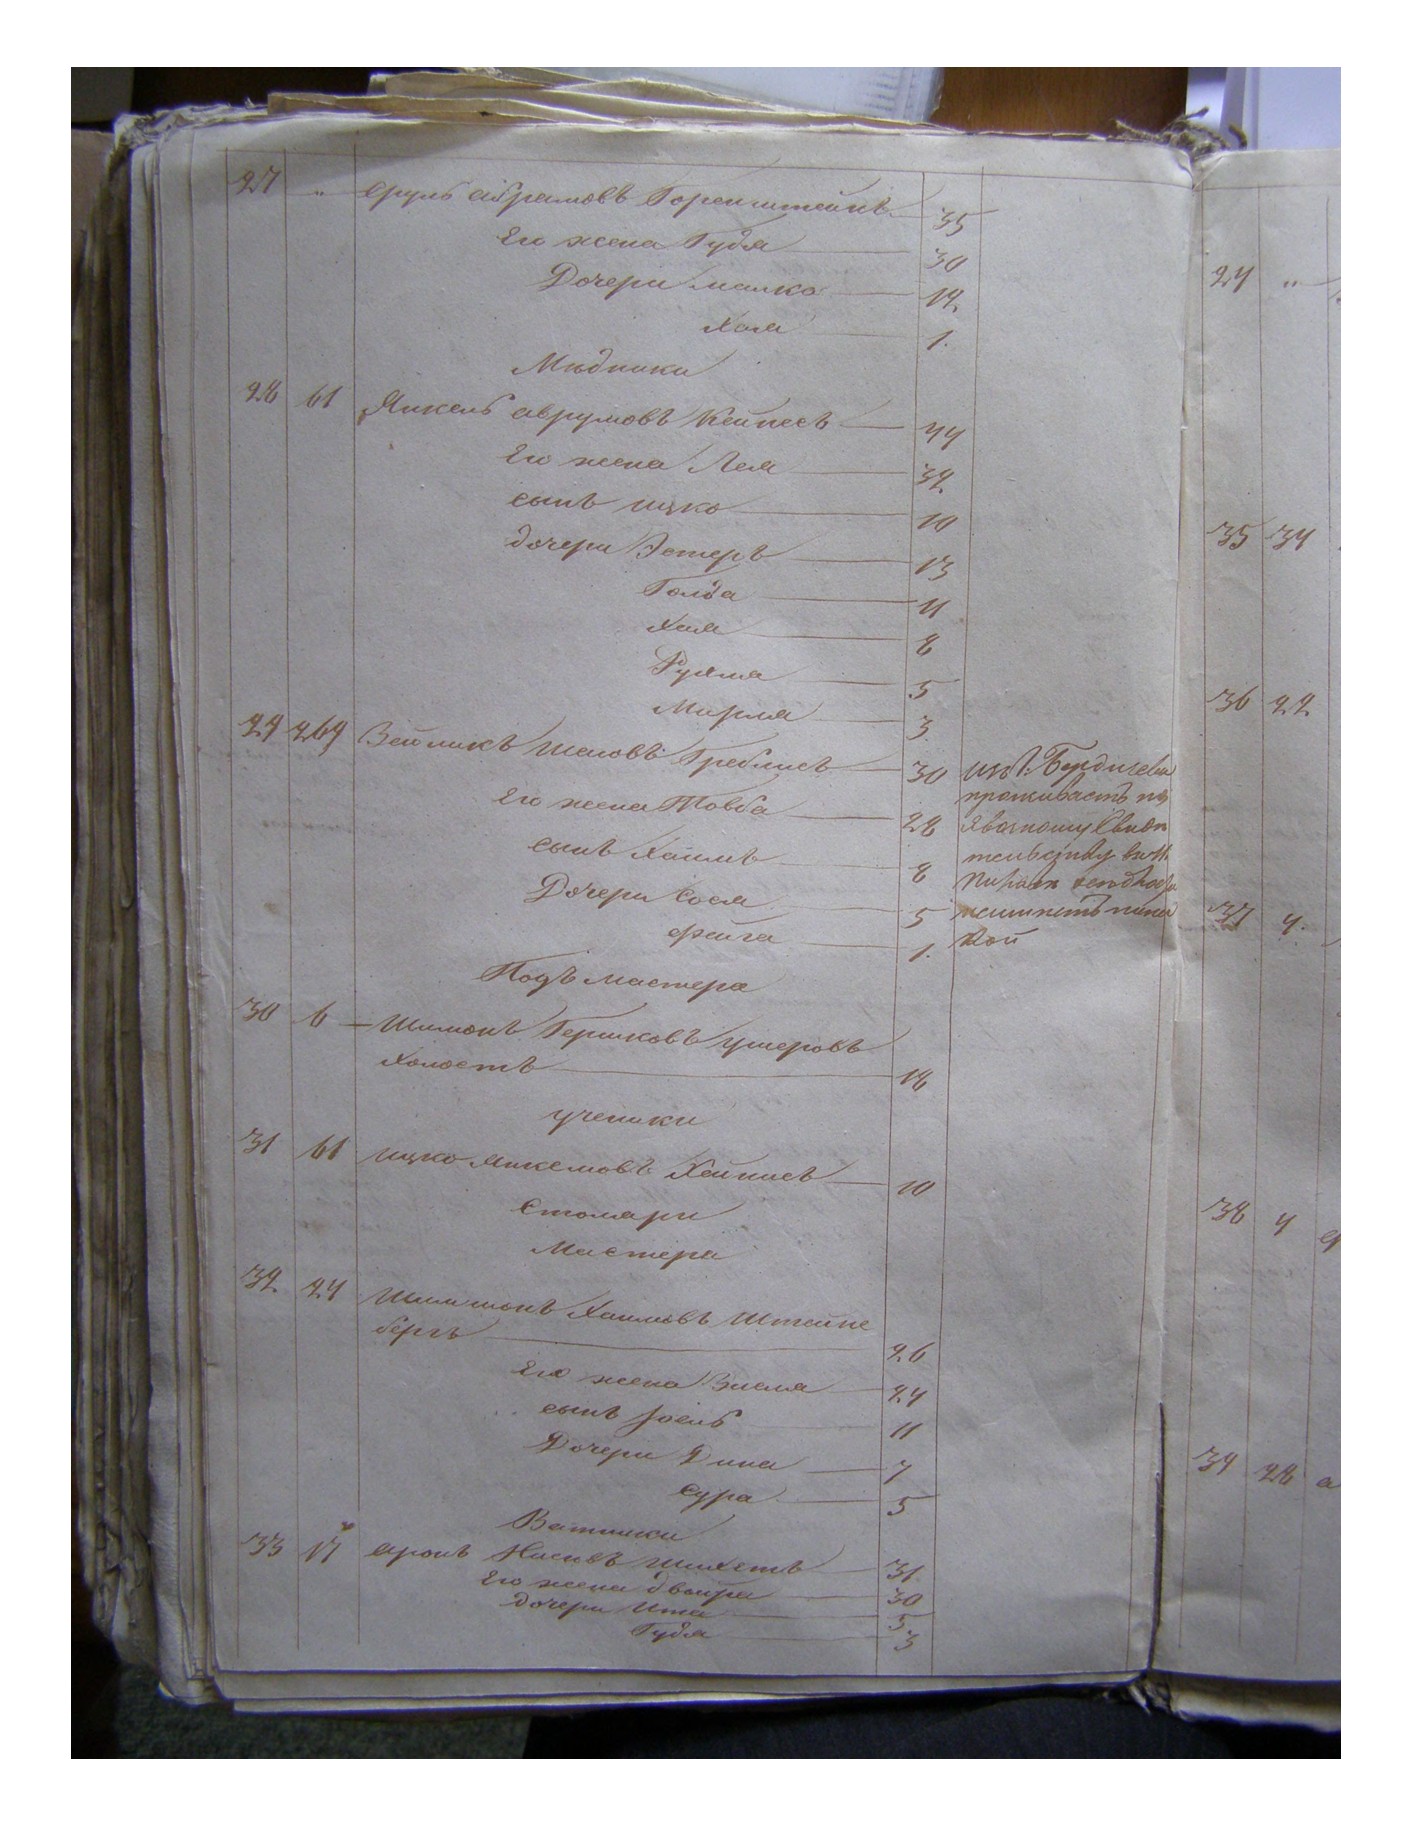 27 " Сруль Абрамовъ Горенштейнъ 35
Его жена Гудя 30
Дочери Малка 12
Хая 1.
Мѣдники
28 61 Янкель Аврумовъ Кейпесъ 44
Его жена Лея 32
сынъ Ицко 10
дочери Эстеръ 13
Голда 11
Хая 8
Рухля 5
Мирля 3
29 269 Зейликъ Шаевъ Греблисъ 30
Его жена Товба 28
сынъ Хаимъ 8
Дочери Сося 5
Фейга 1.
изъ г. Бердичева
проживаетъ по
явочному
кой
Подъ мастера
30 6 Шимонъ Гершковъ Ушеровъ
Холостъ 18
ученики
31 61 Ицко Янкелювъ Хейписъ 10
Столяри
Мастера
32 24 Шимшонъ Хаимовъ Штейне
бергъ 26
Его жена Зисля 24
сынъ Іосль 11
Дочери Дина 7
Сура 5
Ватники
33 17 Аронъ 31.
Его жена Двойра 30
дочери Ита 5
Гудя 3
24 "
35 34
36 22
37 4.
38 4
39 28 а